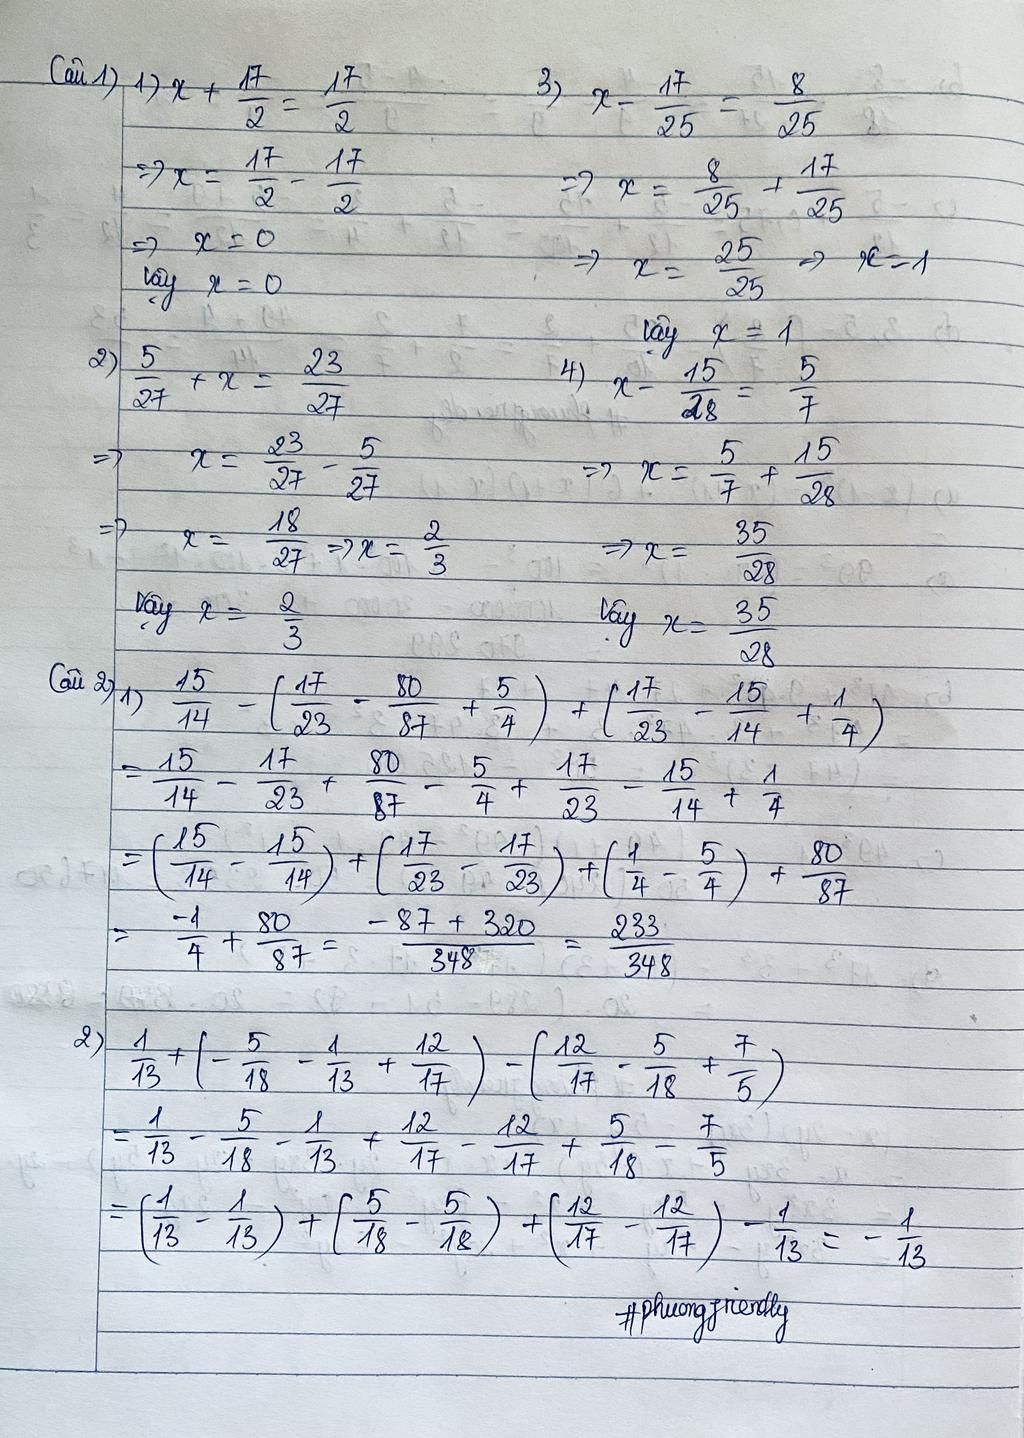 Câu 1) 1) x + 17/2 = 17/2
=> x = 17/2 - 17/2
=> x = 0
Vậy x = 0
2) 5/27 + x = 23/27
=> x = 23/27 - 5/27
=> x = 18/27 => x = 2/3
Vậy x = 2/3
3) x - 17/25 = 8/25
=> x = 8/25 + 17/25
=> x = 25/25 => x = 1
Vậy x = 1
4) x - 15/28 = 5/7
=> x = 5/7 + 15/28
=> x = 35/28
Vậy x = 35/28
Câu 2) 1) 15/14 - (17/23 - 80/87 + 5/4) + (17/23 - 15/14 + 1/4)
= 15/14 - 17/23 + 80/87 - 5/4 + 17/23 - 15/14 + 1/4
= (15/14 - 15/14) + (17/23 - 17/23) + (1/4 - 5/4) + 80/87
= -1/4 + 80/87 = (-87 + 320)/348 = 233/348
2) 1/13 + (- 5/18 - 1/13 + 12/17) - (12/17 - 5/18 + 7/5)
= 1/13 - 5/18 - 1/13 + 12/17 - 12/17 + 5/18 - 7/5
= (1/13 - 1/13) + (5/18 - 5/18) + (12/17 - 12/17) - 1/13 = - 1/13
#phuongfriendly